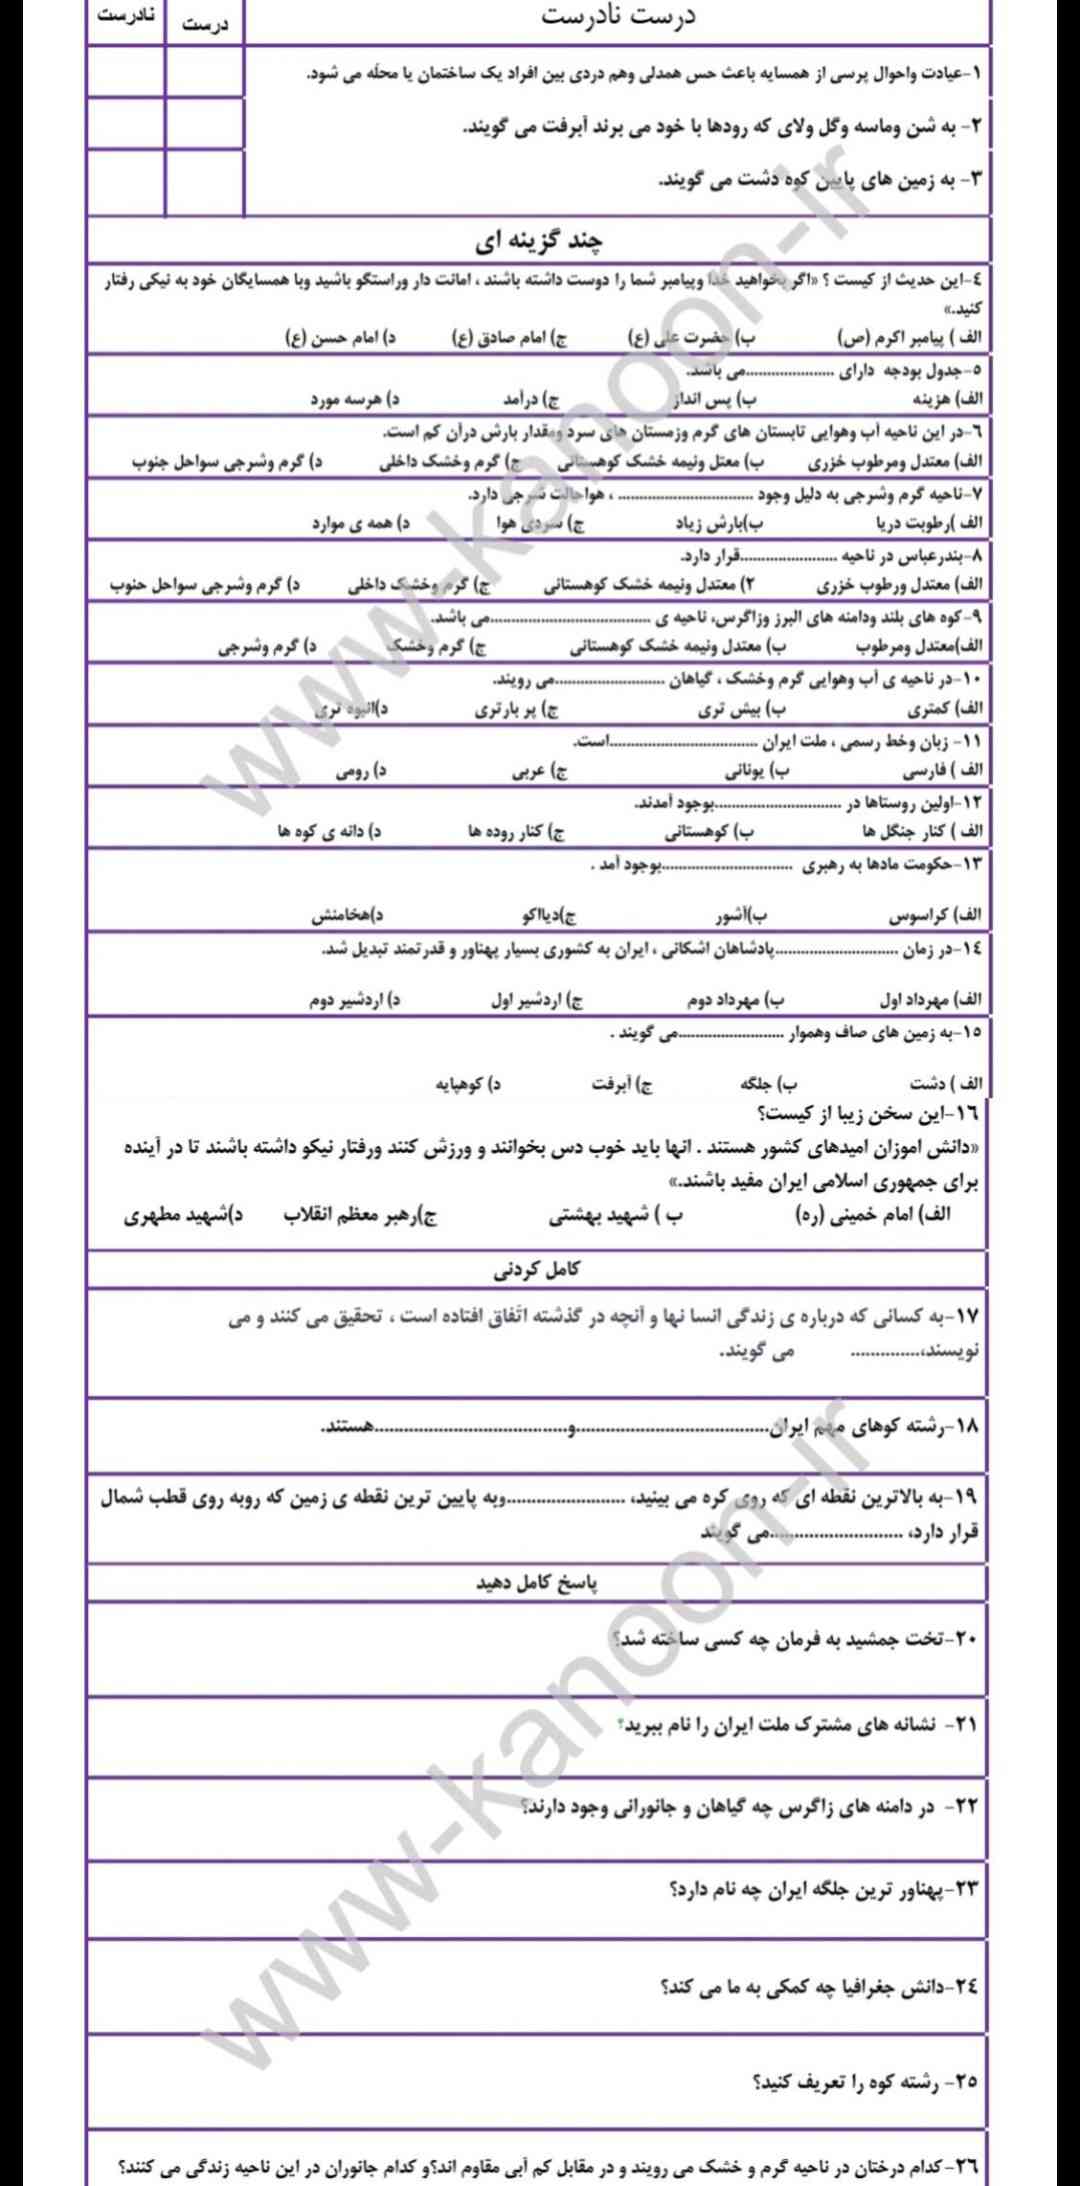 درست نادرست
درست
نادرست
۱-عیادت واحوال پرسی از همسایه باعث حس همدلی وهم دردی بین افراد یک ساختمان یا محلّه می شود.
۲- به شن وماسه وگل ولای که رودها با خود می برند آبرفت می گویند.
۳- به زمین های پایین کوه دشت می گویند.
چند گزینه ای
٤-این حدیث از کیست ؟ «اگر بخواهید خدا وپیامبر شما را دوست داشته باشند ، امانت دار وراستگو باشید وبا همسایگان خود به نیکی رفتار
کنید.»
الف ) پیامبر اکرم (ص) ب) حضرت علی (ع) ج) امام صادق (ع) د) امام حسن (ع)
٥-جدول بودجه دارای ....................می باشد.
الف) هزینه ب) پس انداز ج) درآمد د) هرسه مورد
٦-در این ناحیه آب وهوایی تابستان های گرم وزمستان های سرد ومقدار بارش درآن کم است.
الف) معتدل ومرطوب خزری ب) معتل ونیمه خشک کوهستانی ج) گرم وخشک داخلی د) گرم وشرجی سواحل جنوب
۷-ناحیه گرم وشرجی به دلیل وجود ............................... ، هواحالت شرجی دارد.
الف )رطوبت دریا ب)بارش زیاد ج) سردی هوا د) همه ی موارد
۸-بندرعباس در ناحیه ......................قرار دارد.
الف) معتدل ورطوب خزری ۲) معتدل ونیمه خشک کوهستانی ج) گرم وخشک داخلی د) گرم وشرجی سواحل حنوب
۹-کوه های بلند ودامنه های البرز وزاگرس، ناحیه ی .....................................می باشد.
الف)معتدل ومرطوب ب) معتدل ونیمه خشک کوهستانی ج) گرم وخشک د) گرم وشرجی
۱۰-در ناحیه ی آب وهوایی گرم وخشک ، گیاهان .........................می رویند.
الف) کمتری ب) بیش تری ج) پر بارتری د)انبوه تری
۱۱- زبان وخط رسمی ، ملت ایران ..................................است.
الف ) فارسی ب) یونانی ج) عربی د) رومی
۱۲-اولین روستاها در .............................بوجود آمدند.
الف ) کنار جنگل ها ب) کوهستانی ج) کنار روده ها د) دانه ی کوه ها
۱۳-حکومت مادها به رهبری ..............................بوجود آمد .
الف) کراسوس ب)آشور ج)دیااکو د)هخامنش
۱٤-در زمان ............................پادشاهان اشکانی ، ایران به کشوری بسیار پهناور و قدرتمند تبدیل شد.
الف) مهرداد اول ب) مهرداد دوم ج) اردشیر اول د) اردشیر دوم
۱٥-به زمین های صاف وهموار ........................می گویند .
الف ) دشت ب) جلگه ج) آبرفت د) کوهپایه
۱٦-این سخن زیبا از کیست؟
«دانش اموزان امیدهای کشور هستند . انها باید خوب دس بخوانند و ورزش کنند ورفتار نیکو داشته باشند تا در آینده
برای جمهوری اسلامی ایران مفید باشند.»
الف) امام خمینی (ره) ب ) شهید بهشتی ج)رهبر معظم انقلاب د)شهید مطهری
کامل کردنی
۱۷-به کسانی که درباره ی زندگی انسا نها و آنچه در گذشته اتّفاق افتاده است ، تحقیق می کنند و می
نویسند،.............. می گویند.
۱۸-رشته کوهای مهم ایران........................................و........................................هستند.
۱۹-به بالاترین نقطه ای که روی کره می بینید، ........................وبه پایین ترین نقطه ی زمین که روبه روی قطب شمال
قرار دارد، ...........................می گویند
پاسخ کامل دهید
۲۰-تخت جمشید به فرمان چه کسی ساخته شد؟
۲۱- نشانه های مشترک ملت ایران را نام ببرید؟
۲۲- در دامنه های زاگرس چه گیاهان و جانورانی وجود دارند؟
۲۳-پهناور ترین جلگه ایران چه نام دارد؟
۲٤-دانش جغرافیا چه کمکی به ما می کند؟
۲٥- رشته کوه را تعریف کنید؟
۲٦-کدام درختان در ناحیه گرم و خشک می رویند و در مقابل کم آبی مقاوم اند؟و کدام جانوران در این ناحیه زندگی می کنند؟
www-kanoon-ir
www-kanoon-ir